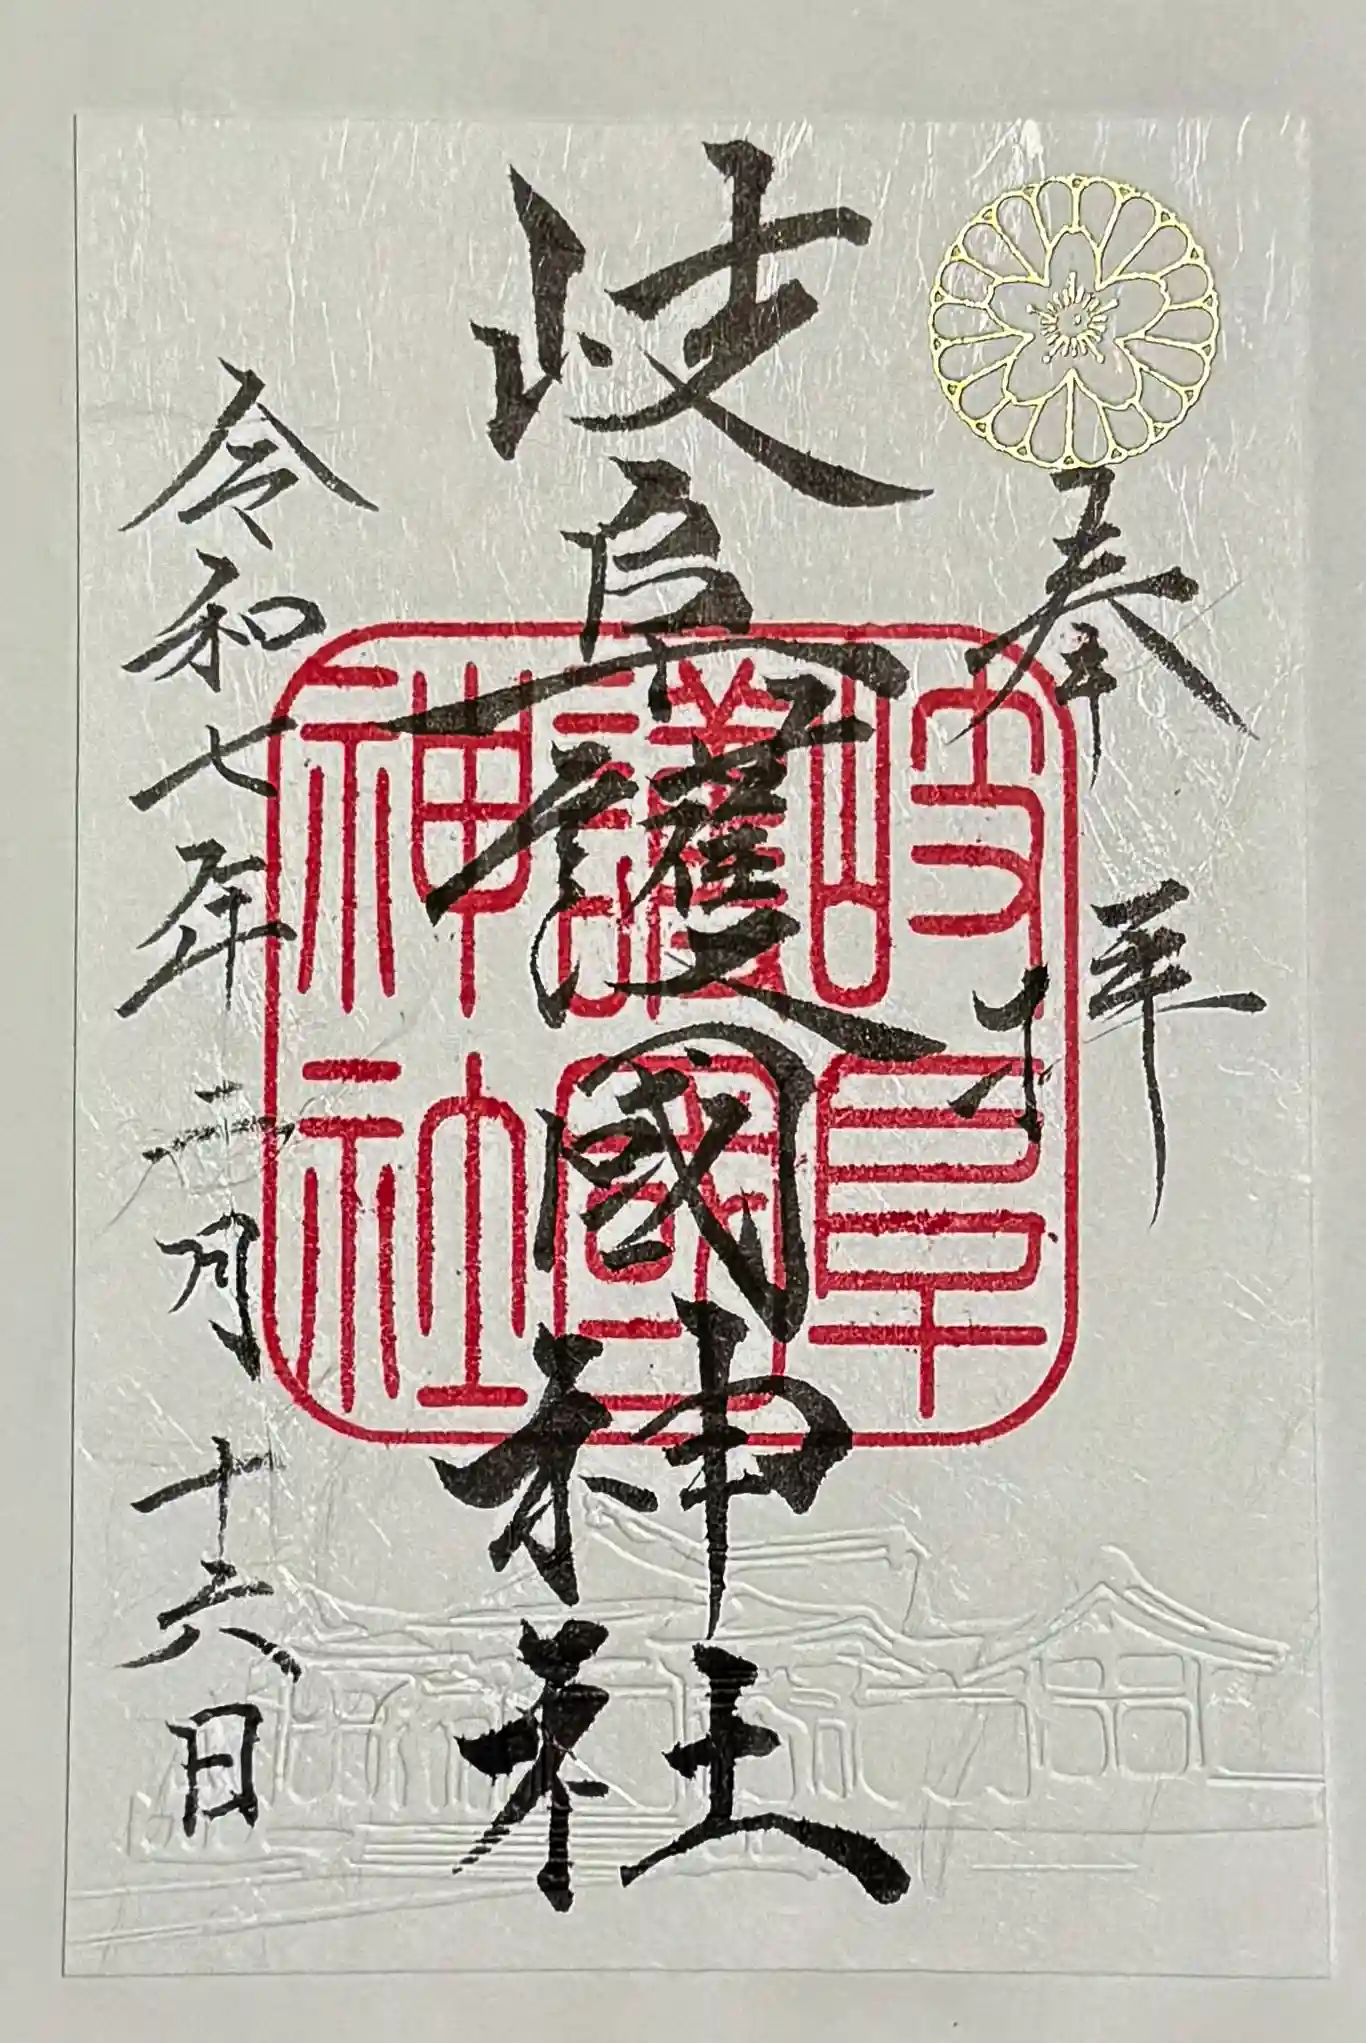 奉拝
岐阜護國神社
令和七年二月十六日
岐阜
護國
神社